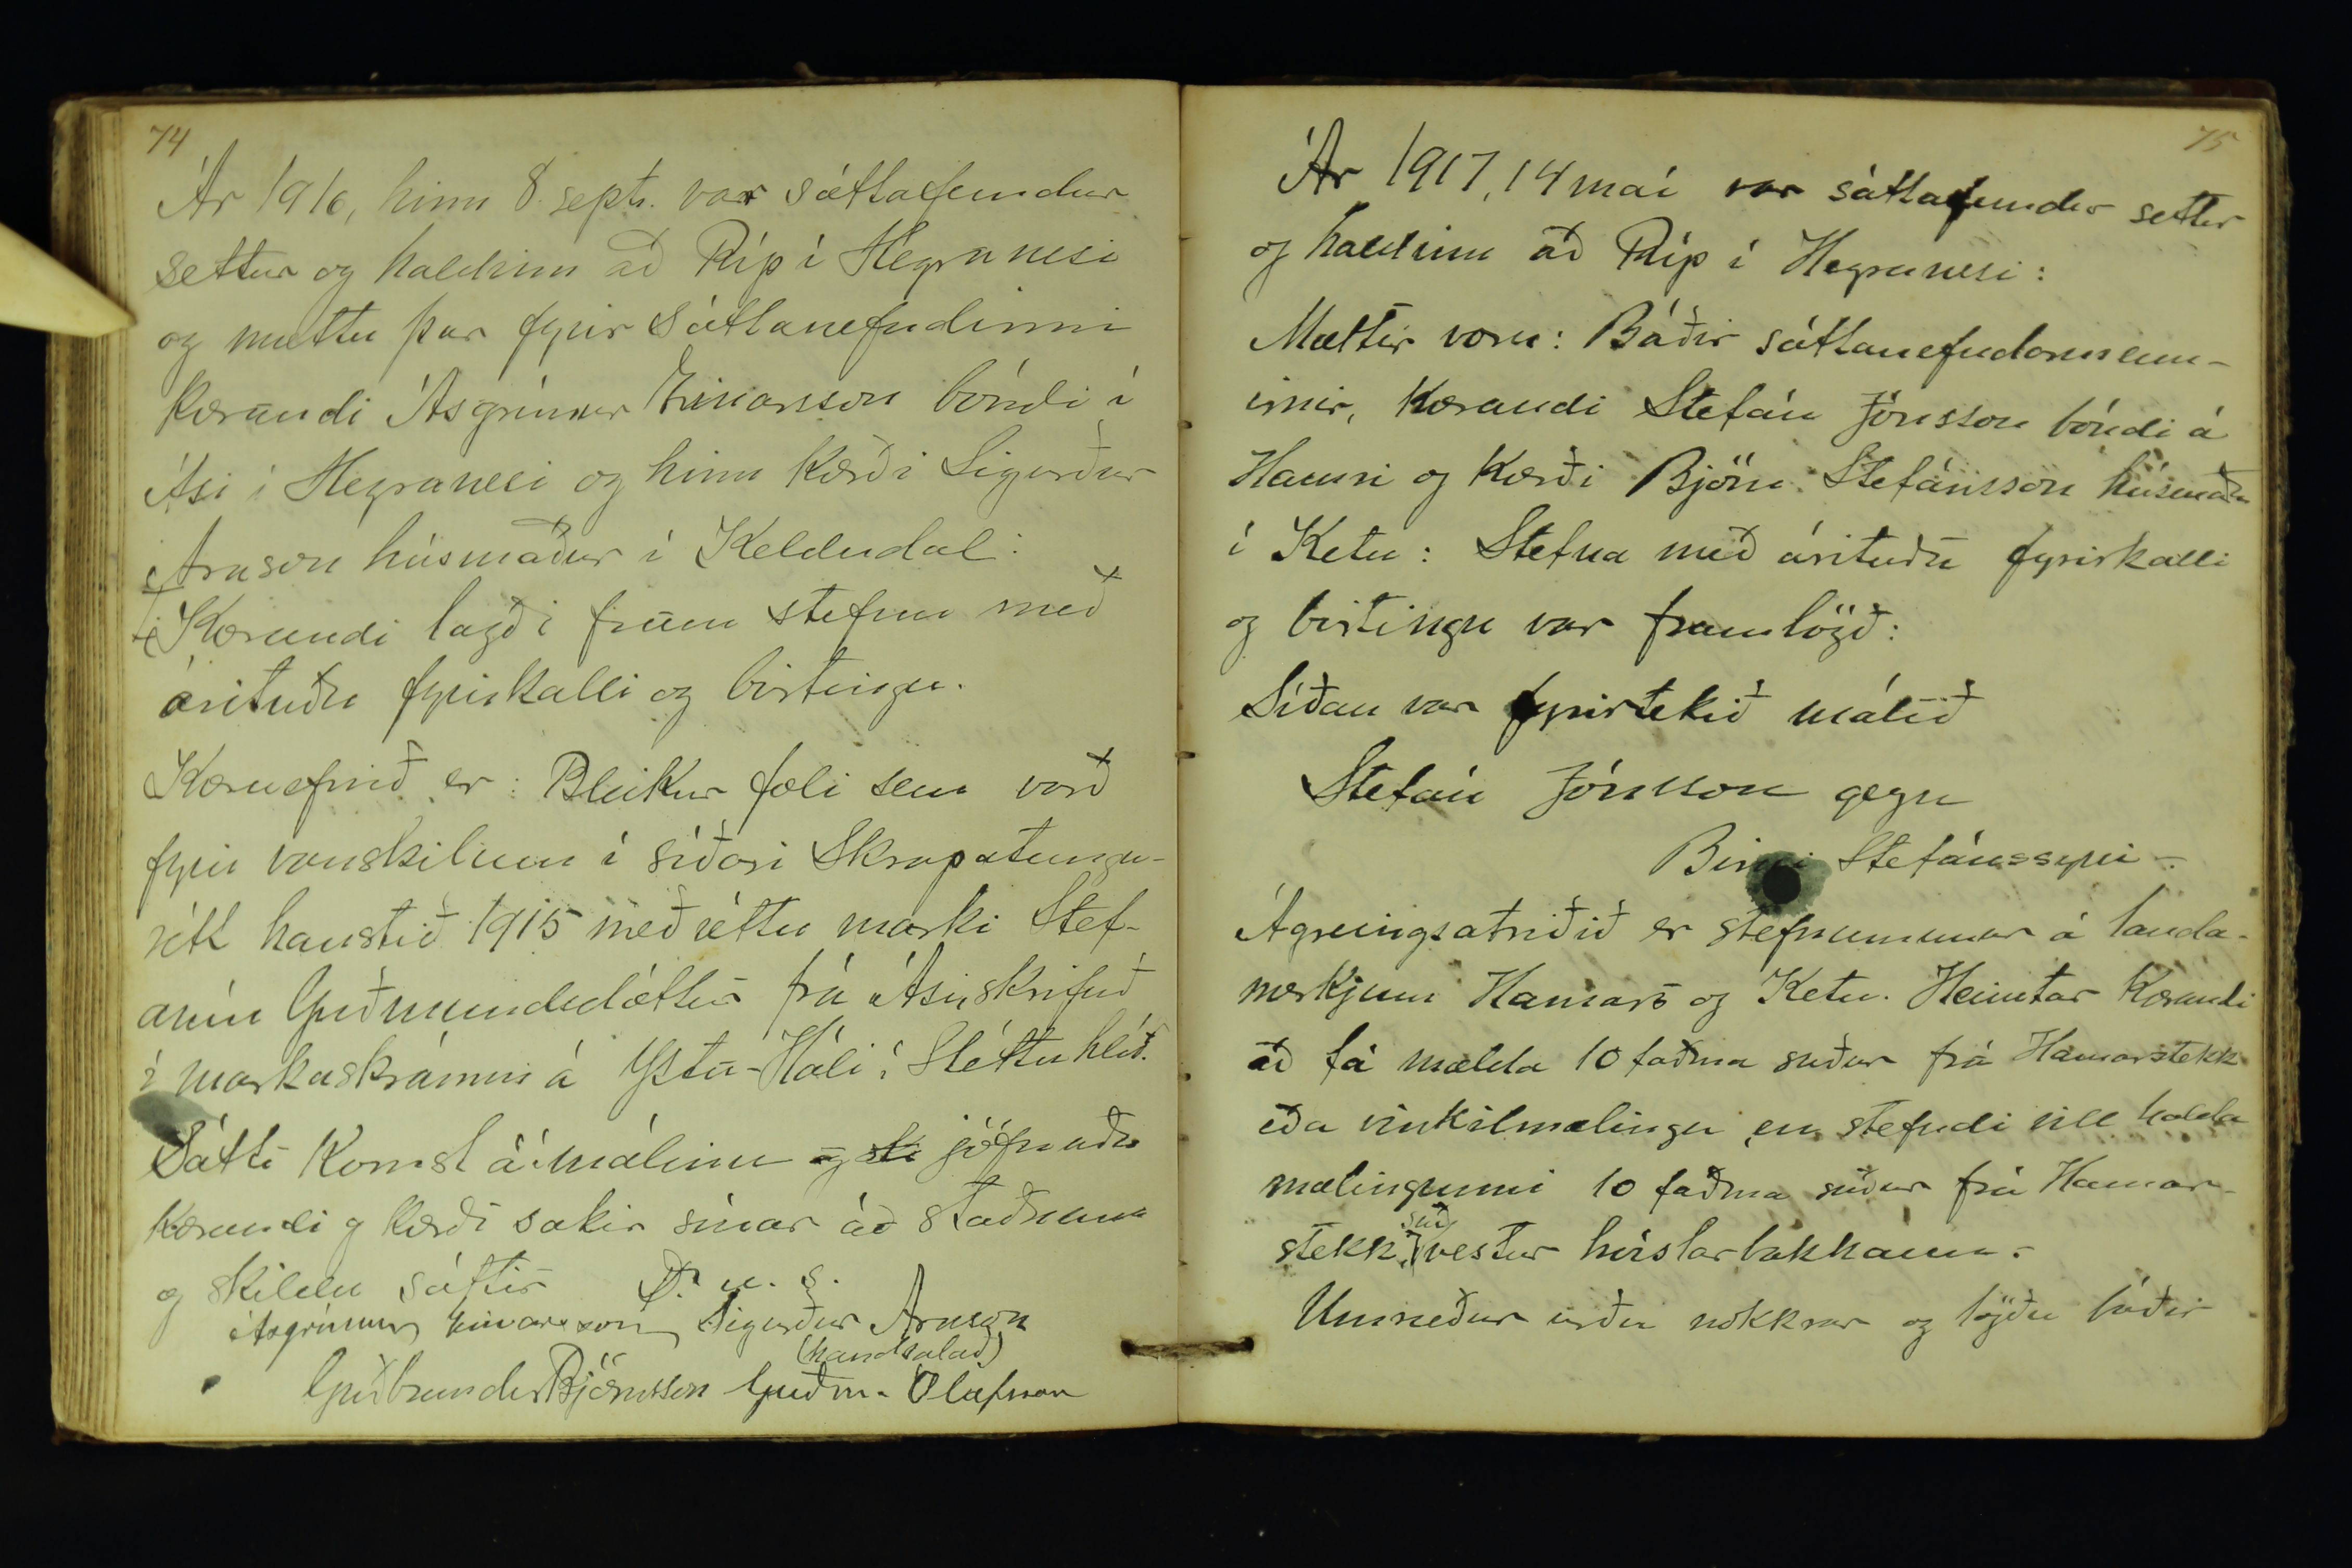 74
Ár 1916, hinn 8. sept. var sáttafundur
settur og haldinn að Ríp í Hegranesi
og mættu þar fyrir sáttanefndinni
kærandi Ásgrímur Einarsson bóndi í
Ási í Hegranesi og hinn kærði Sigurður
Árnson húsmaður í Keldudal:
Kærandi lagði fram stefnu með
árituðu fyrirkalli og birtingu.
Kæruefnið er: Bleikur foli sem varð
fyrir vanskilum í síðari Skrapatungu-
rétt haustið 1915 með réttu marki Stef-
aníu Guðmundsdóttur frá Ási, skrifuð
í markaskránni á Ystu-Hóli í Sléttuhlíð.
Sátt komst á í málinu og jöfnuðu
kærandi og kærði sakir sínar á staðnum
og skildu sáttir D. u. s.
Ásgrímur Einarsson Sigurður Árnson
(handsalað)
Guðbrandur Björnsson Guðm. Ólafsson
75
Ár 1917, 14 maí var sáttafundur settur
og haldinn að Ríp í Hegranesi:
Mættir voru: Báðir sáttanefndarmenn-
irnir, kærandi Stefán Jónsson bóndi á
Hamri og kærði Björn Stefánsson húsmaður
í Ketu: Stefna með árituðu fyrirkalli
og birtingu var framlögð:
Síðan var fyrirtekið málið
Stefán Jónsson gegn
Birni Stefánssyni -.
Ágreiningsatriðið er stefnumunur á landa-
merkjum Hamars og Ketu. Heimtar kærandi
að fá mælda 10 faðma suður frá Hamarstekk
eða vinkilmælingu, en stefndi vill halda
mælingunni 10 faðma suður frá Hamar-
stekk í suðvestur
Umræður urðu nokkrar og lögðu báðir